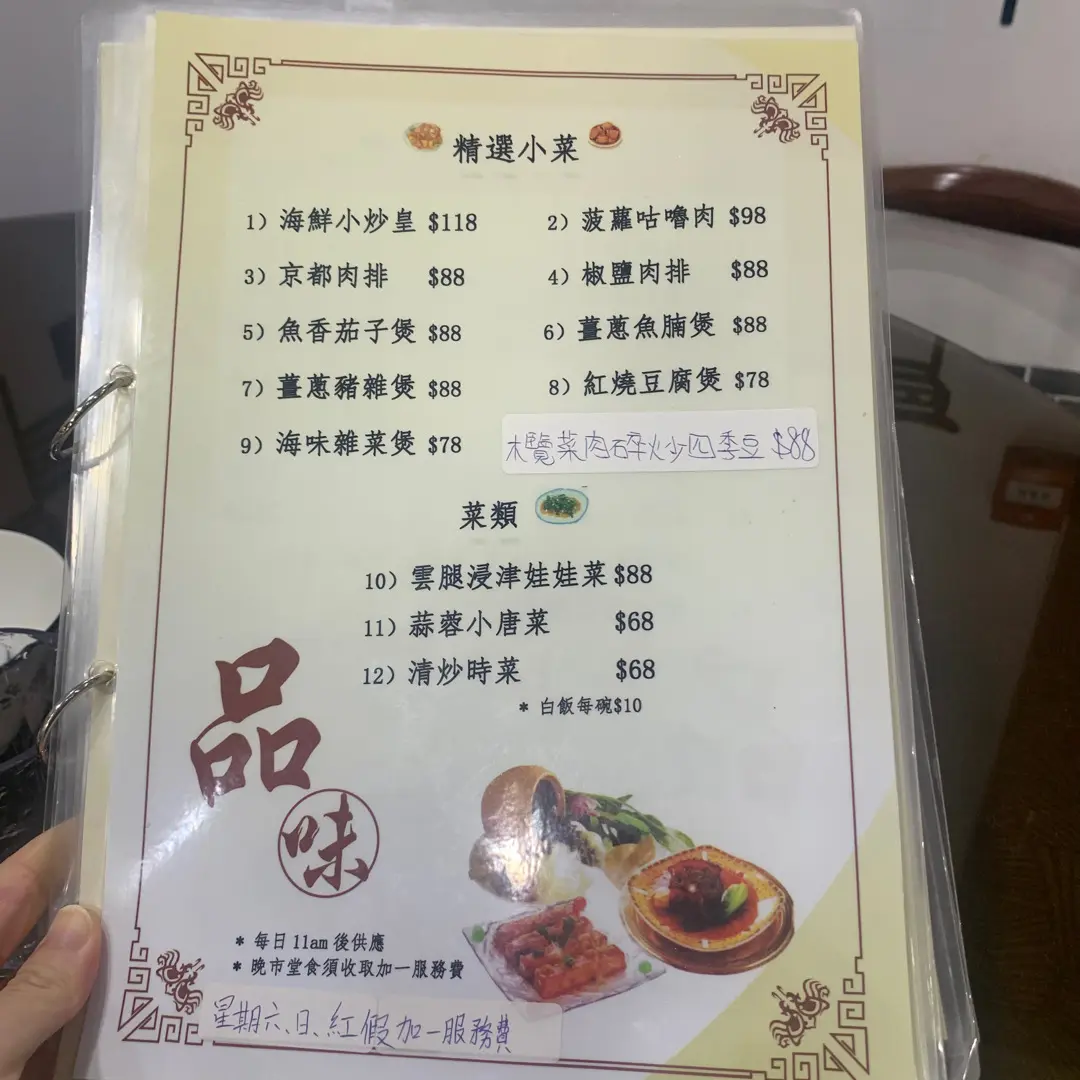 精選小菜
1) 海鮮小炒皇 $118
2) 菠蘿咕嚕肉 $98
3) 京都肉排 $88
4) 椒鹽肉排 $88
5) 魚香茄子煲 $88
6) 薑蔥魚腩煲 $88
7) 薑蔥豬雜煲 $88
8) 紅燒豆腐煲 $78
9) 海味雜菜煲 $78
木覽菜肉碎炒四季豆 $88
菜類
10) 雲腿浸津娃娃菜 $88
11) 蒜蓉小唐菜 $68
12) 清炒時菜 $68
* 白飯每碗$10
品味
* 每日 11am 後供應
* 晚市堂食須收取加一服務費
星期六、日、紅假加一服務費